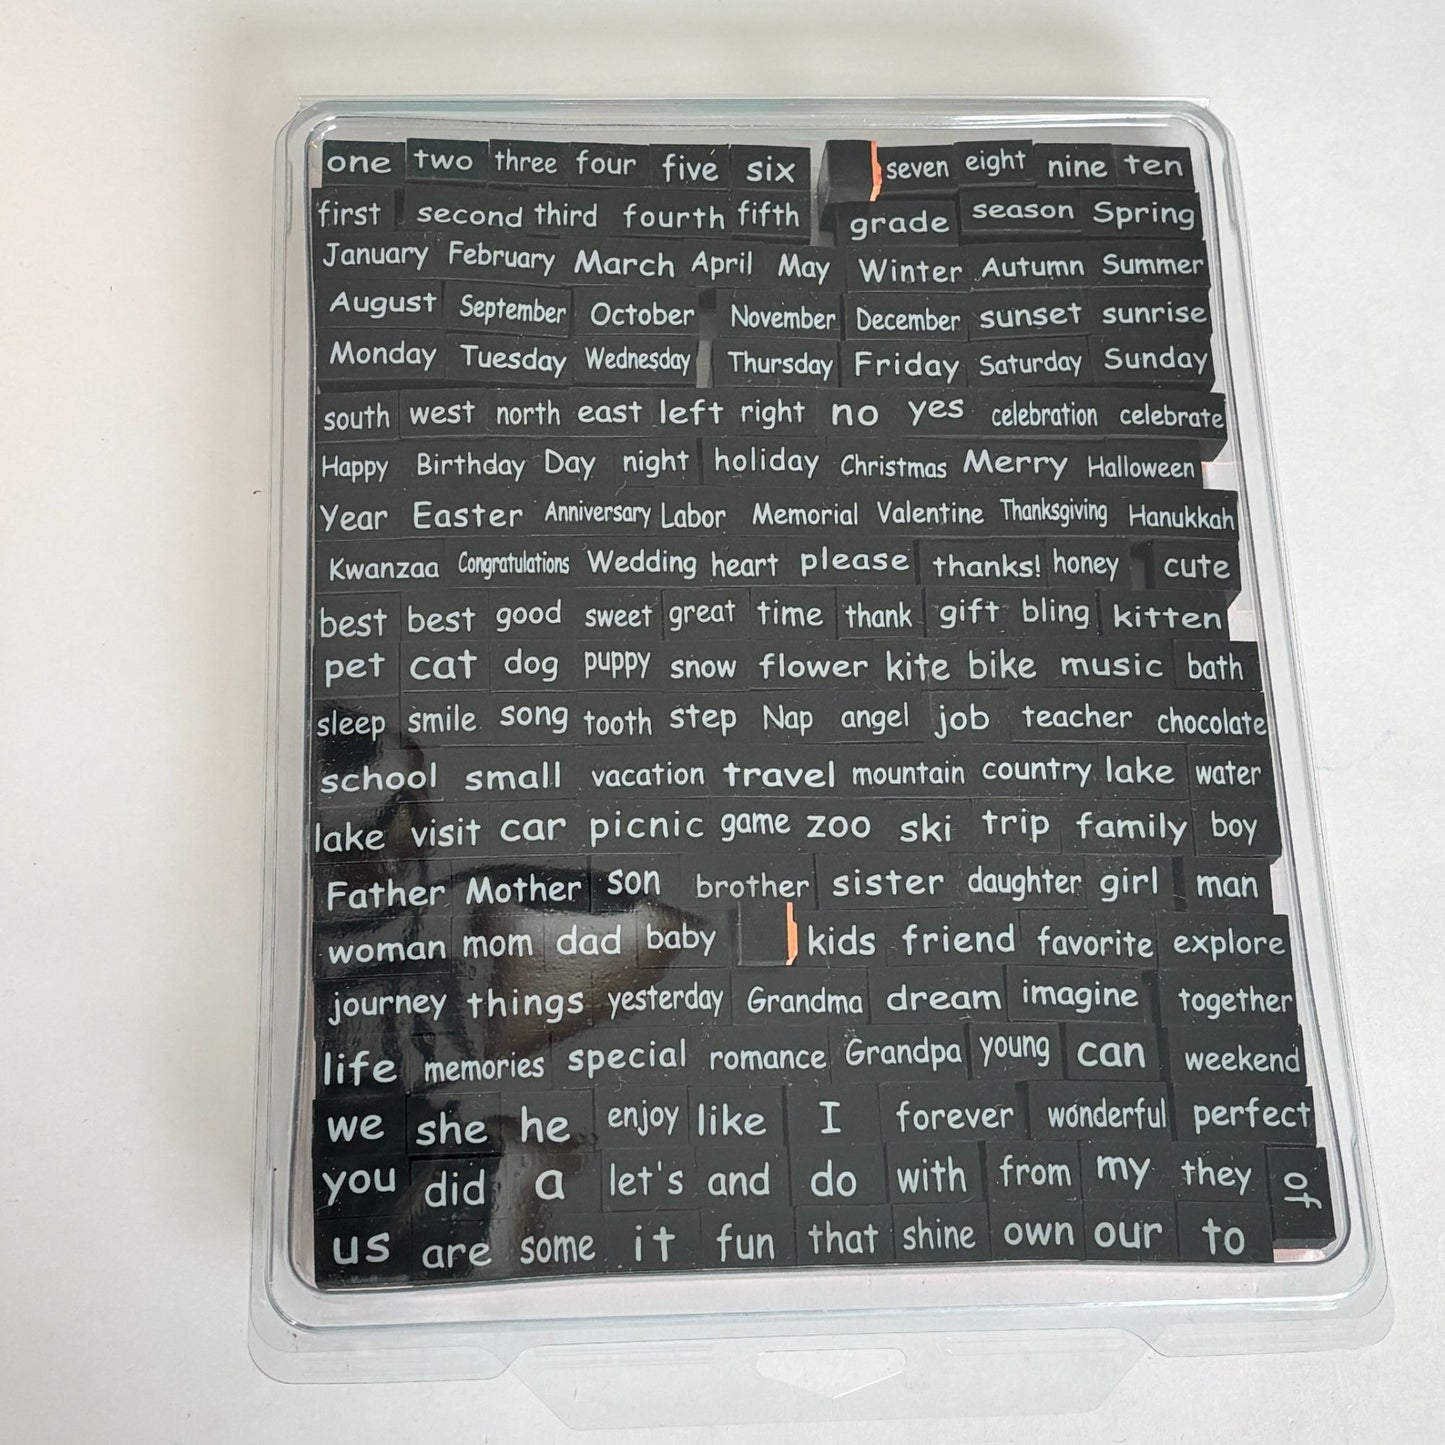 one two three four five six seven eight nine ten
first second third fourth fifth grade season Spring
January February March April May Winter Autumn Summer
August September October November December sunset sunrise
Monday Tuesday Wednesday Thursday Friday Saturday Sunday
south west north east left right no yes celebration celebrate
Happy Birthday Day night holiday Christmas Merry Halloween
Year Easter Anniversary Labor Memorial Valentine Thanksgiving Hanukkah
Kwanzaa Congratulations Wedding heart please thanks! honey cute
best best good sweet great time thank gift bling kitten
pet cat dog puppy snow flower kite bike music bath
sleep smile song tooth step Nap angel job teacher chocolate
school small vacation travel mountain country lake water
lake visit car picnic game zoo ski trip family boy
Father Mother son brother sister daughter girl man
woman mom dad baby kids friend favorite explore
journey things yesterday Grandma dream imagine together
life memories special romance Grandpa young can weekend
we she he enjoy like I forever wonderful perfect
you did a let's and do with from my they of
us are some it fun that shine own our to